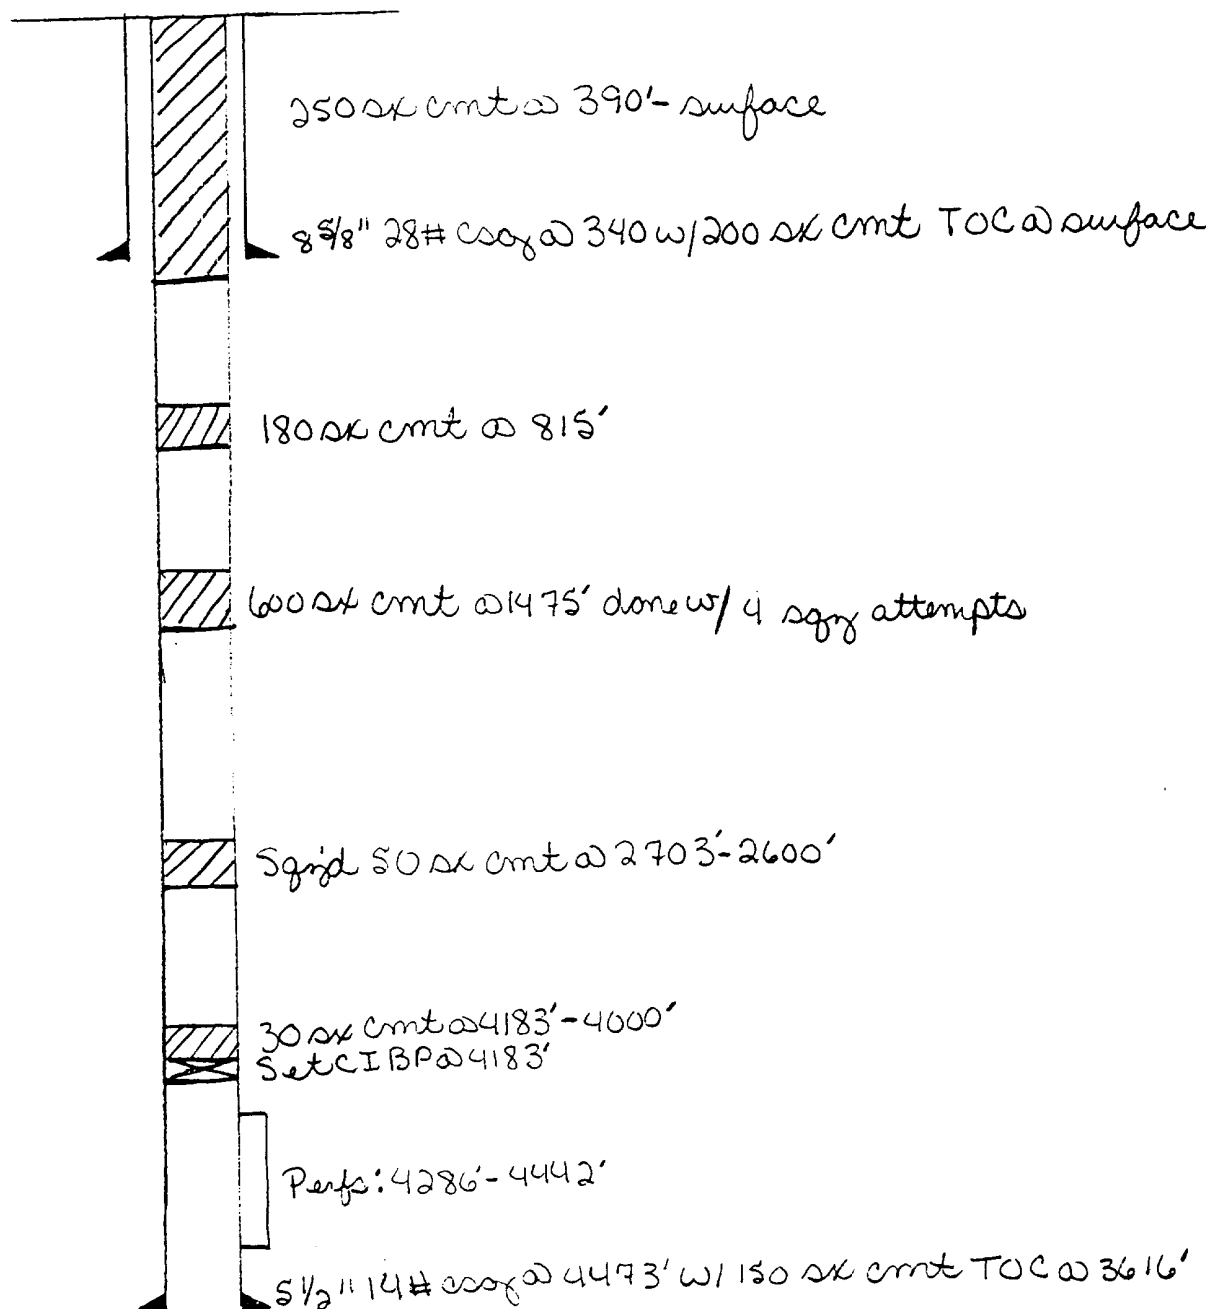 250 sx cmt @ 390'- surface
8 5/8" 28# csg @ 340 w/200 sx cmt TOC @ surface
180 sx cmt @ 815'
600 sx cmt @ 1475' done w/ 4 sqz attempts
Sqz'd 50 sx cmt @ 2703'-2600'
30 sx cmt @ 4183'-4000'
Set CIBP @ 4183'
Perfs: 4286'-4442'
5 1/2" 14# csg @ 4473' w/ 150 sx cmt TOC @ 3616'